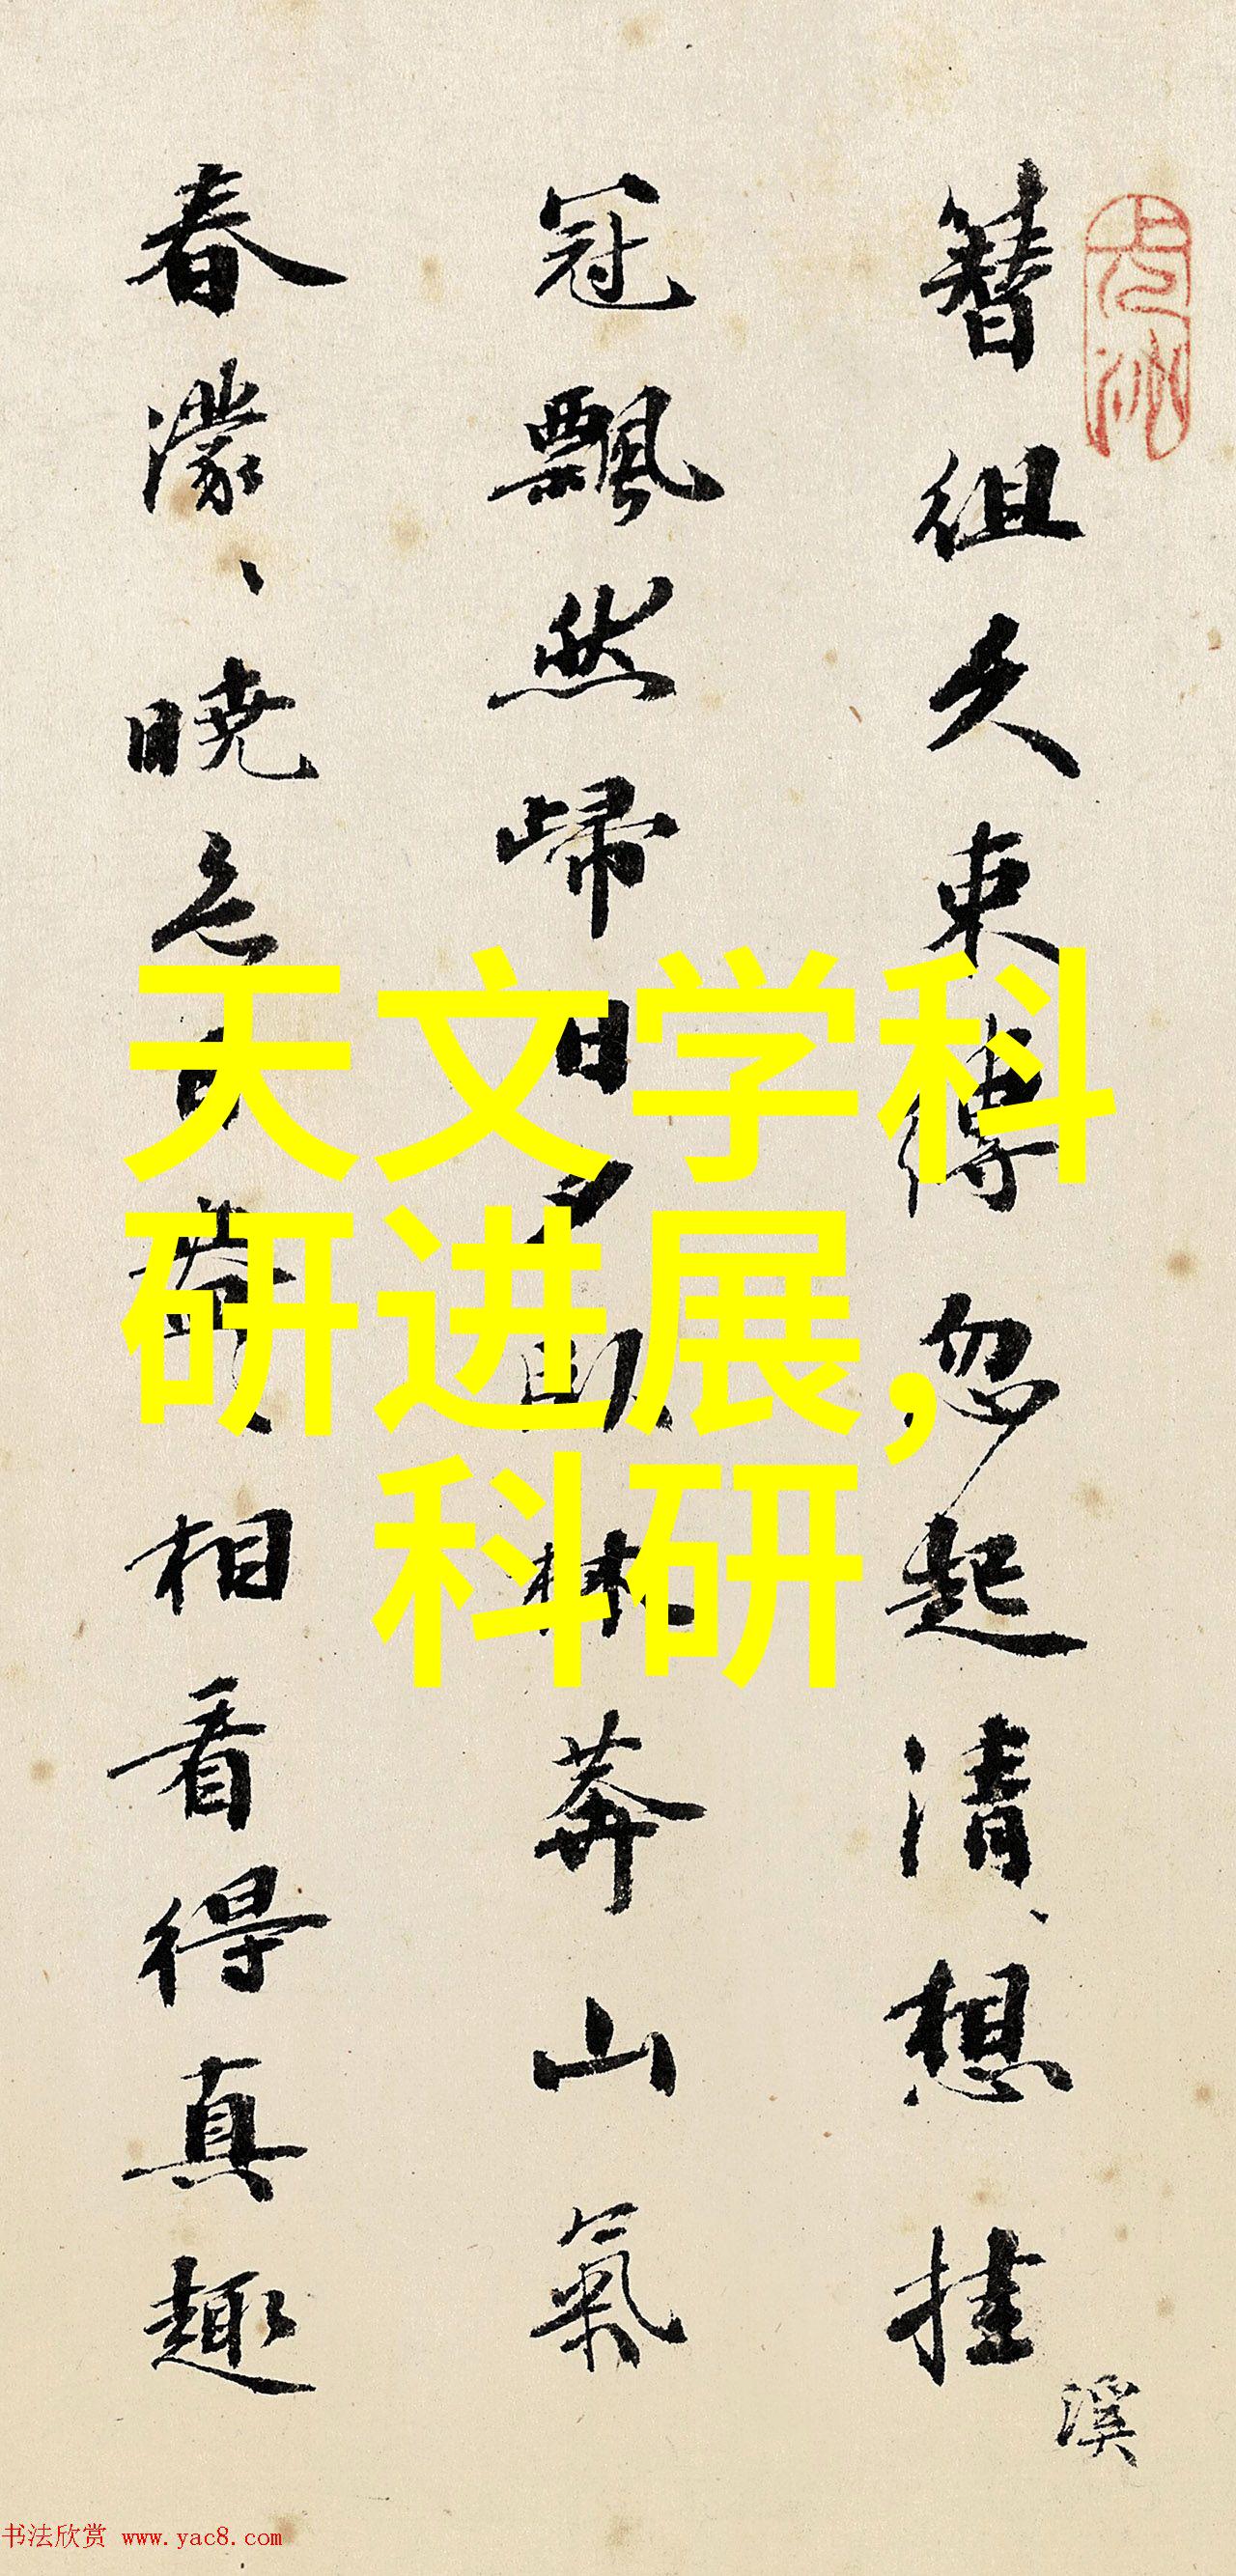 簪組久束縛忽起清想挂
冠飄然歸日夕臥林莽山氣
春濛、曉色日蒼、相看得真趣
溪
天文学科
研进展,
科研
书法欣赏 www.yac8.com